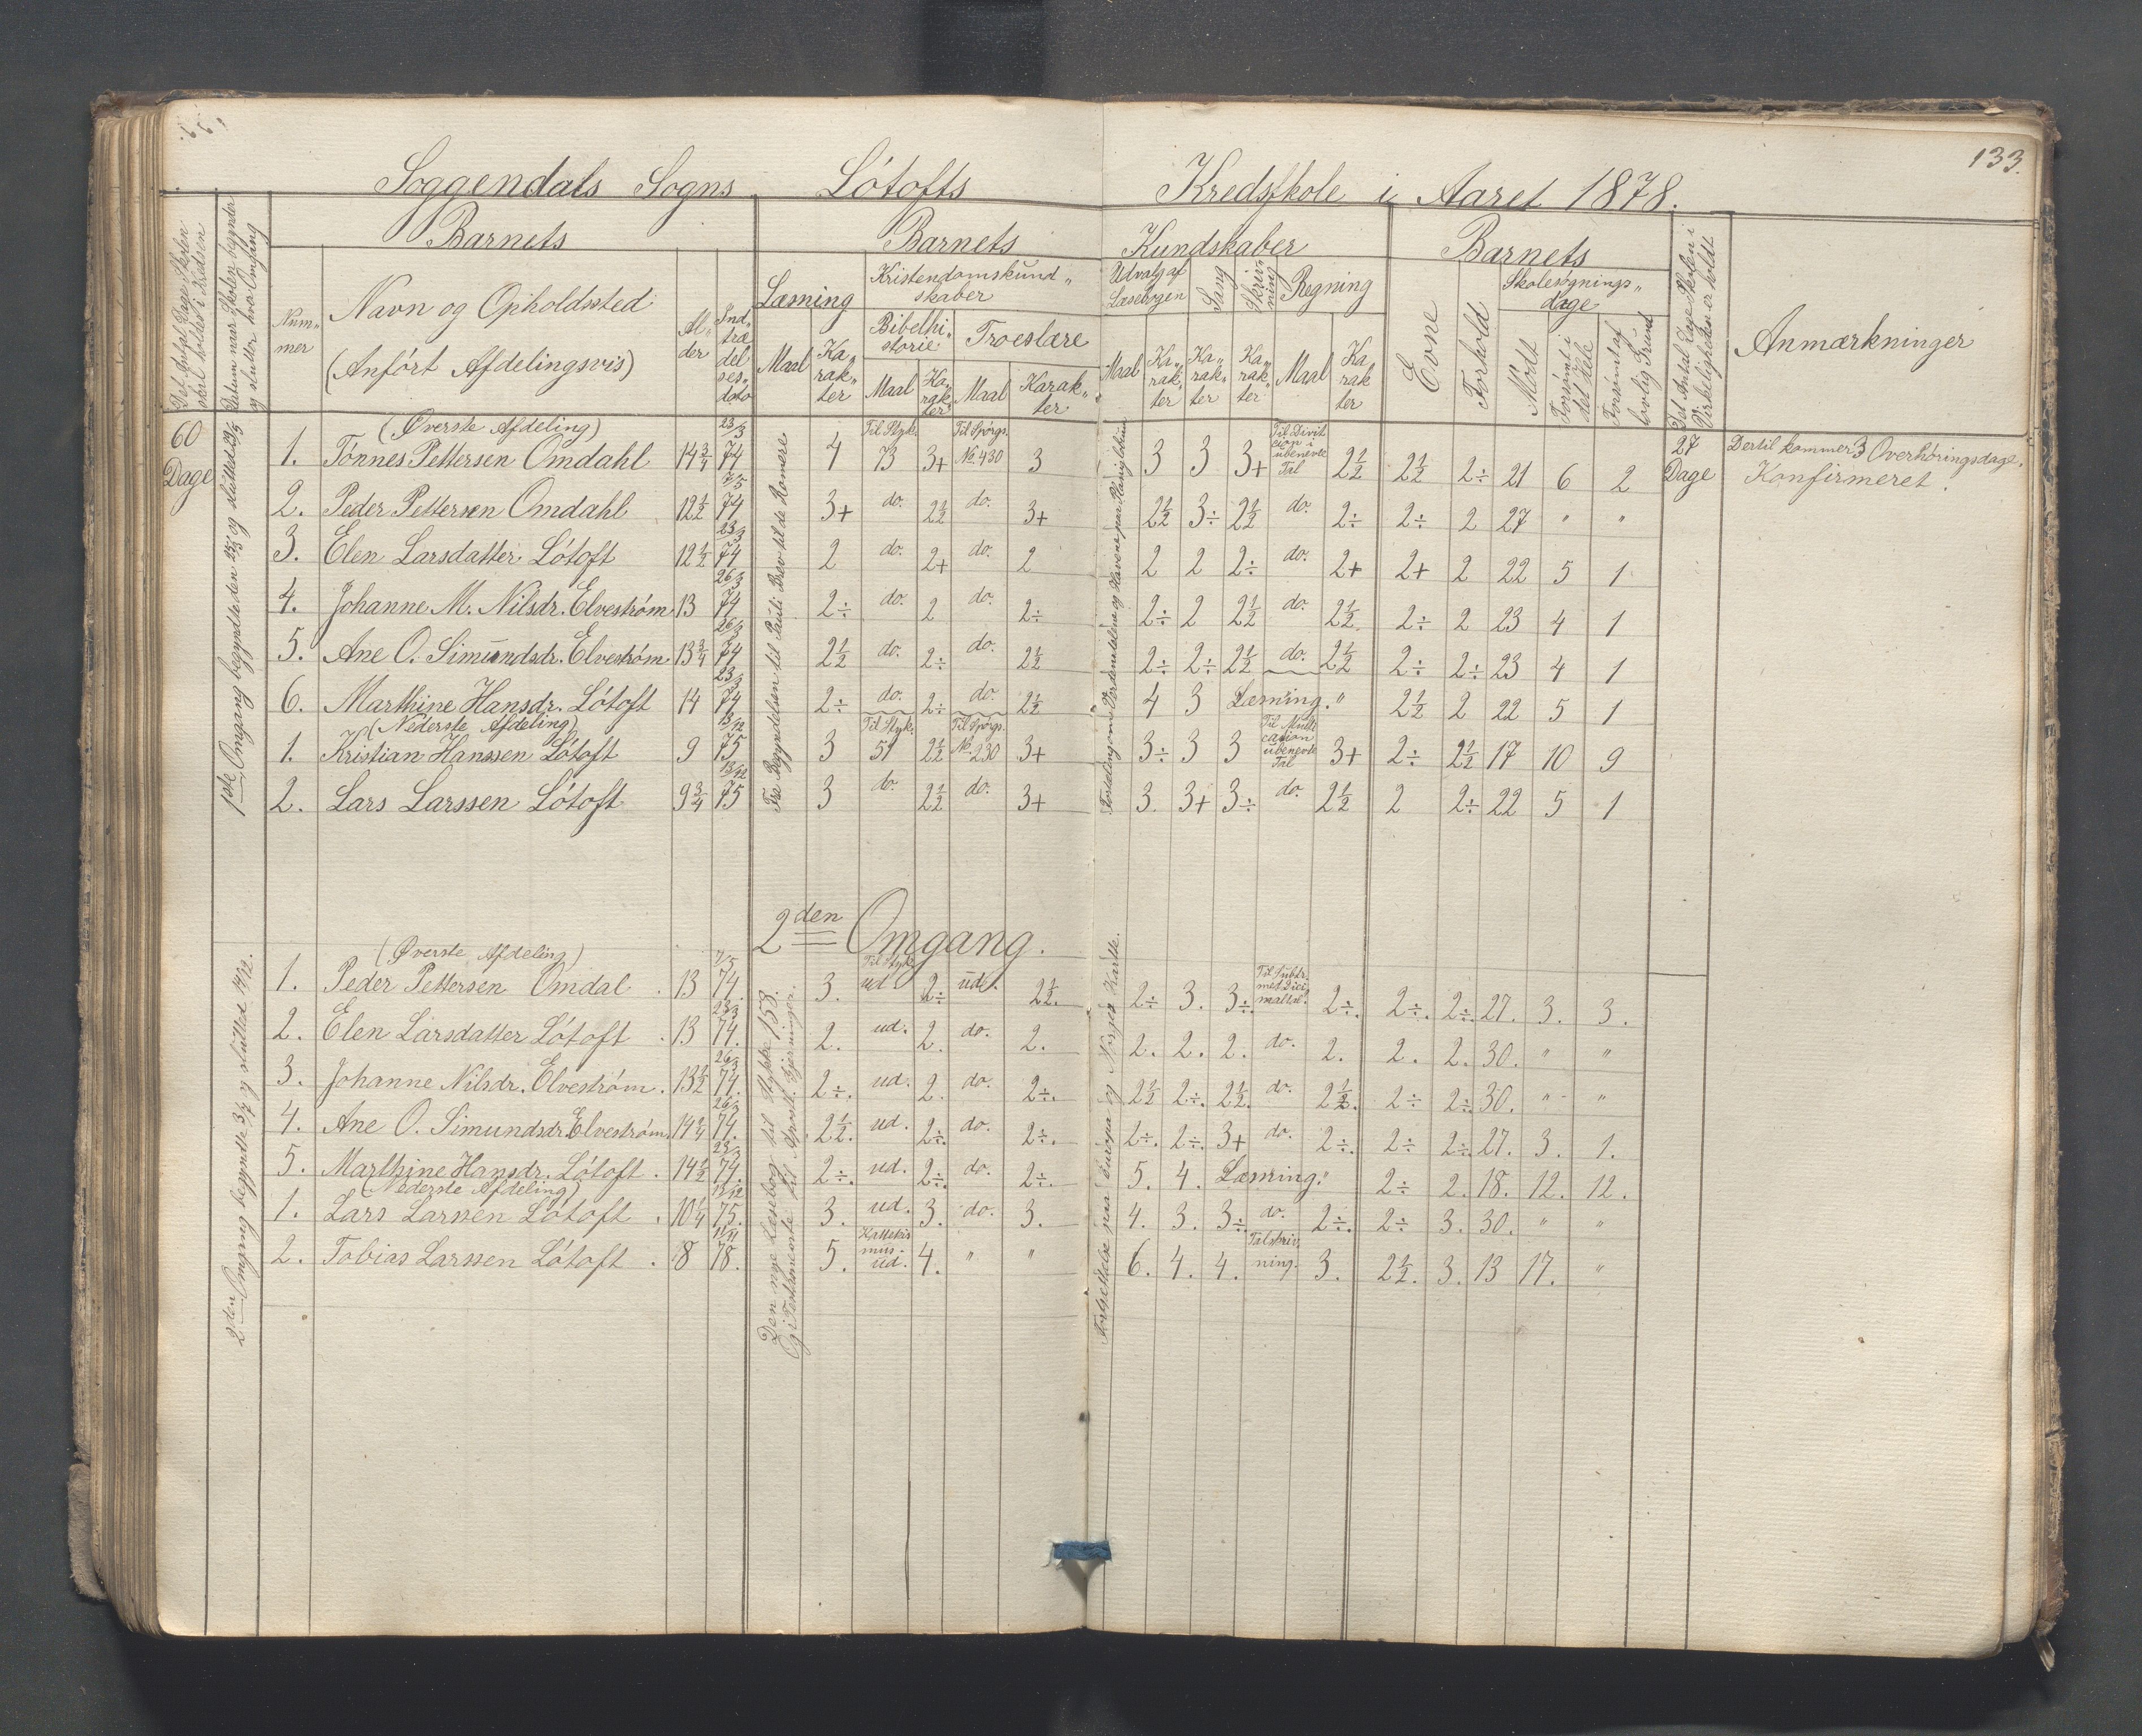 133.
Soggendals Sogns Lótofts Kredsskole i Aaret 1878.
Det Antal Dage Skolen skal holdes i Kredsen
Datum naar Skolen begynder og slutter hver Omgang
Barnets
Nummer
Navn og Opholdssted
(Anfört Afdelingsvis)
Alder
Indtrædelsesdato
Barnets Kundskaber
Læsning
Maal Karakter
Kristendomskundskaber
Bibelhistorie Troeslære
Maal Karakter Maal Karakter
Udvalg af Læsebogen
Maal Karakter
Sang Karakter
Skrivning Karakter
Regning
Maal Karakter
Barnets
Evne
Forhold
Skolesøgningsdage
Mödt
Forsømt i det Hele
Forsømt af lovlig Grund
Det Antal Dage Skolen i Virkeligheden er holdt
Anmærkninger
60 Dage
1ste Omgang begyndte den 25/3 og sluttet
Fra Begyndelsen til Pauli Brev til de Romere
(Øverste Afdeling)
1. Tónnes Pettersen Omdahl 14 3/4 23/3 74 4 Til Styk. 73 3+ Til Spörgs. No. 430 3 3 3 3+ Til Division i ubenevte Tal 2 1/2 2 1/2 2÷ 21 6 2 27 Dage Dertil kommer 3 Overhøringsdage. Konfirmeret.
2. Peder Pettersen Omdahl 12 1/2 7/5 74 3+ do. 2 1/2 do. 3+ 2 1/2 3÷ 2 1/2 do. 2÷ 2÷ 2 27 " "
3. Elen Larsdatter Lótoft 12 1/2 23/3 74 2 do. 2+ do. 2 2 2 2÷ do. 2+ 2+ 2 22 5 1
4. Johanne M. Nilsdr. Elveström 13 26/3 74 2÷ do. 2 do. 2÷ 2÷ 2 2 1/2 do. 2 1/2 2÷ 2 23 4 1
5. Ane O. Simundsdr. Elveström 13 3/4 26/3 74 2 1/2 do. 2÷ do. 2 1/2 2÷ 2÷ 2 1/2 do. 2 1/2 2÷ 2÷ 23 4 1
6. Marthine Hansdr. Lótoft 14 23/3 74 2÷ do. 2÷ do. 2 1/2 4 3 Læsning. " 2 1/2 2 22 5 1
(Nederste Afdeling)
1. Kristian Hanssen Lótoft 9 13/12 75 3 Til Styk. 51 2 1/2 Til Spörgs. No. 230 3+ 3÷ 3 3 Til Multicasion ubenevte Tal 3+ 2÷ 2 1/2 17 10 9
2. Lars Larssen Lótoft 9 3/4 13/12 75 3 do. 2 1/2 do. 3+ 3. 3+ 3÷ do. 2 1/2 2 2÷ 22 5 1
2den Omgang.
2den Omgang begyndte 3/7 og sluttet 14/12.
Den nye Læsebog til Stykke 158.
Og i Testamente til Apost. Gjerninger.
Fortsettelse paa Europa og Norges Karte.
(Øverste Afdeling)
1. Peder Pettersen Omdal 13 7/5 74. 3. Til Styk. ud 2÷ ud. 2 1/2. 2÷ 3. 3÷ Til Subtr. med Decimaltal. 2÷. 2÷. 2÷. 27. 3. 3.
2. Elen Larsdatter Lótoft 13 23/3 74. 2. ud. 2. do. 2. 2. 2. 2. do. 2. 2. 2. 30. " "
3. Johanne Nilsdr. Elveström. 13 1/2 26/3 74. 2÷. ud. 2. do. 2÷. 2 1/2 2÷. 2 1/2. do. 2 1/2. 2÷ 2÷ 30. " "
4. Ane O. Simundsdr. Elveström. 14 1/4 26/3 74. 2 1/2. ud. 2÷ do. 2÷. 2÷. 2÷. 3+ do. 2÷. 2÷ 2÷ 27. 3. 1.
5. Marthine Hansdr. Lótoft. 14 1/2 23/3 74. 2÷. ud. 2÷. do. 2÷. 5. 4. Læsning. " 2÷ 2. 18. 12. 12.
(Nederste Afdeling)
1. Lars Larssen Lótoft. 10 1/4 13/12 75. 3. ud. 3. do. 3. 4. 3. 3÷. do. 2÷. 2÷ 3. 30. " "
2. Tobias Larssen Lótoft. 8 11/11 78. 5. Kattekismus ud. 4. " " 6. 4. 4. Talskrivning. 3. 2 1/2. 3. 13 17. "